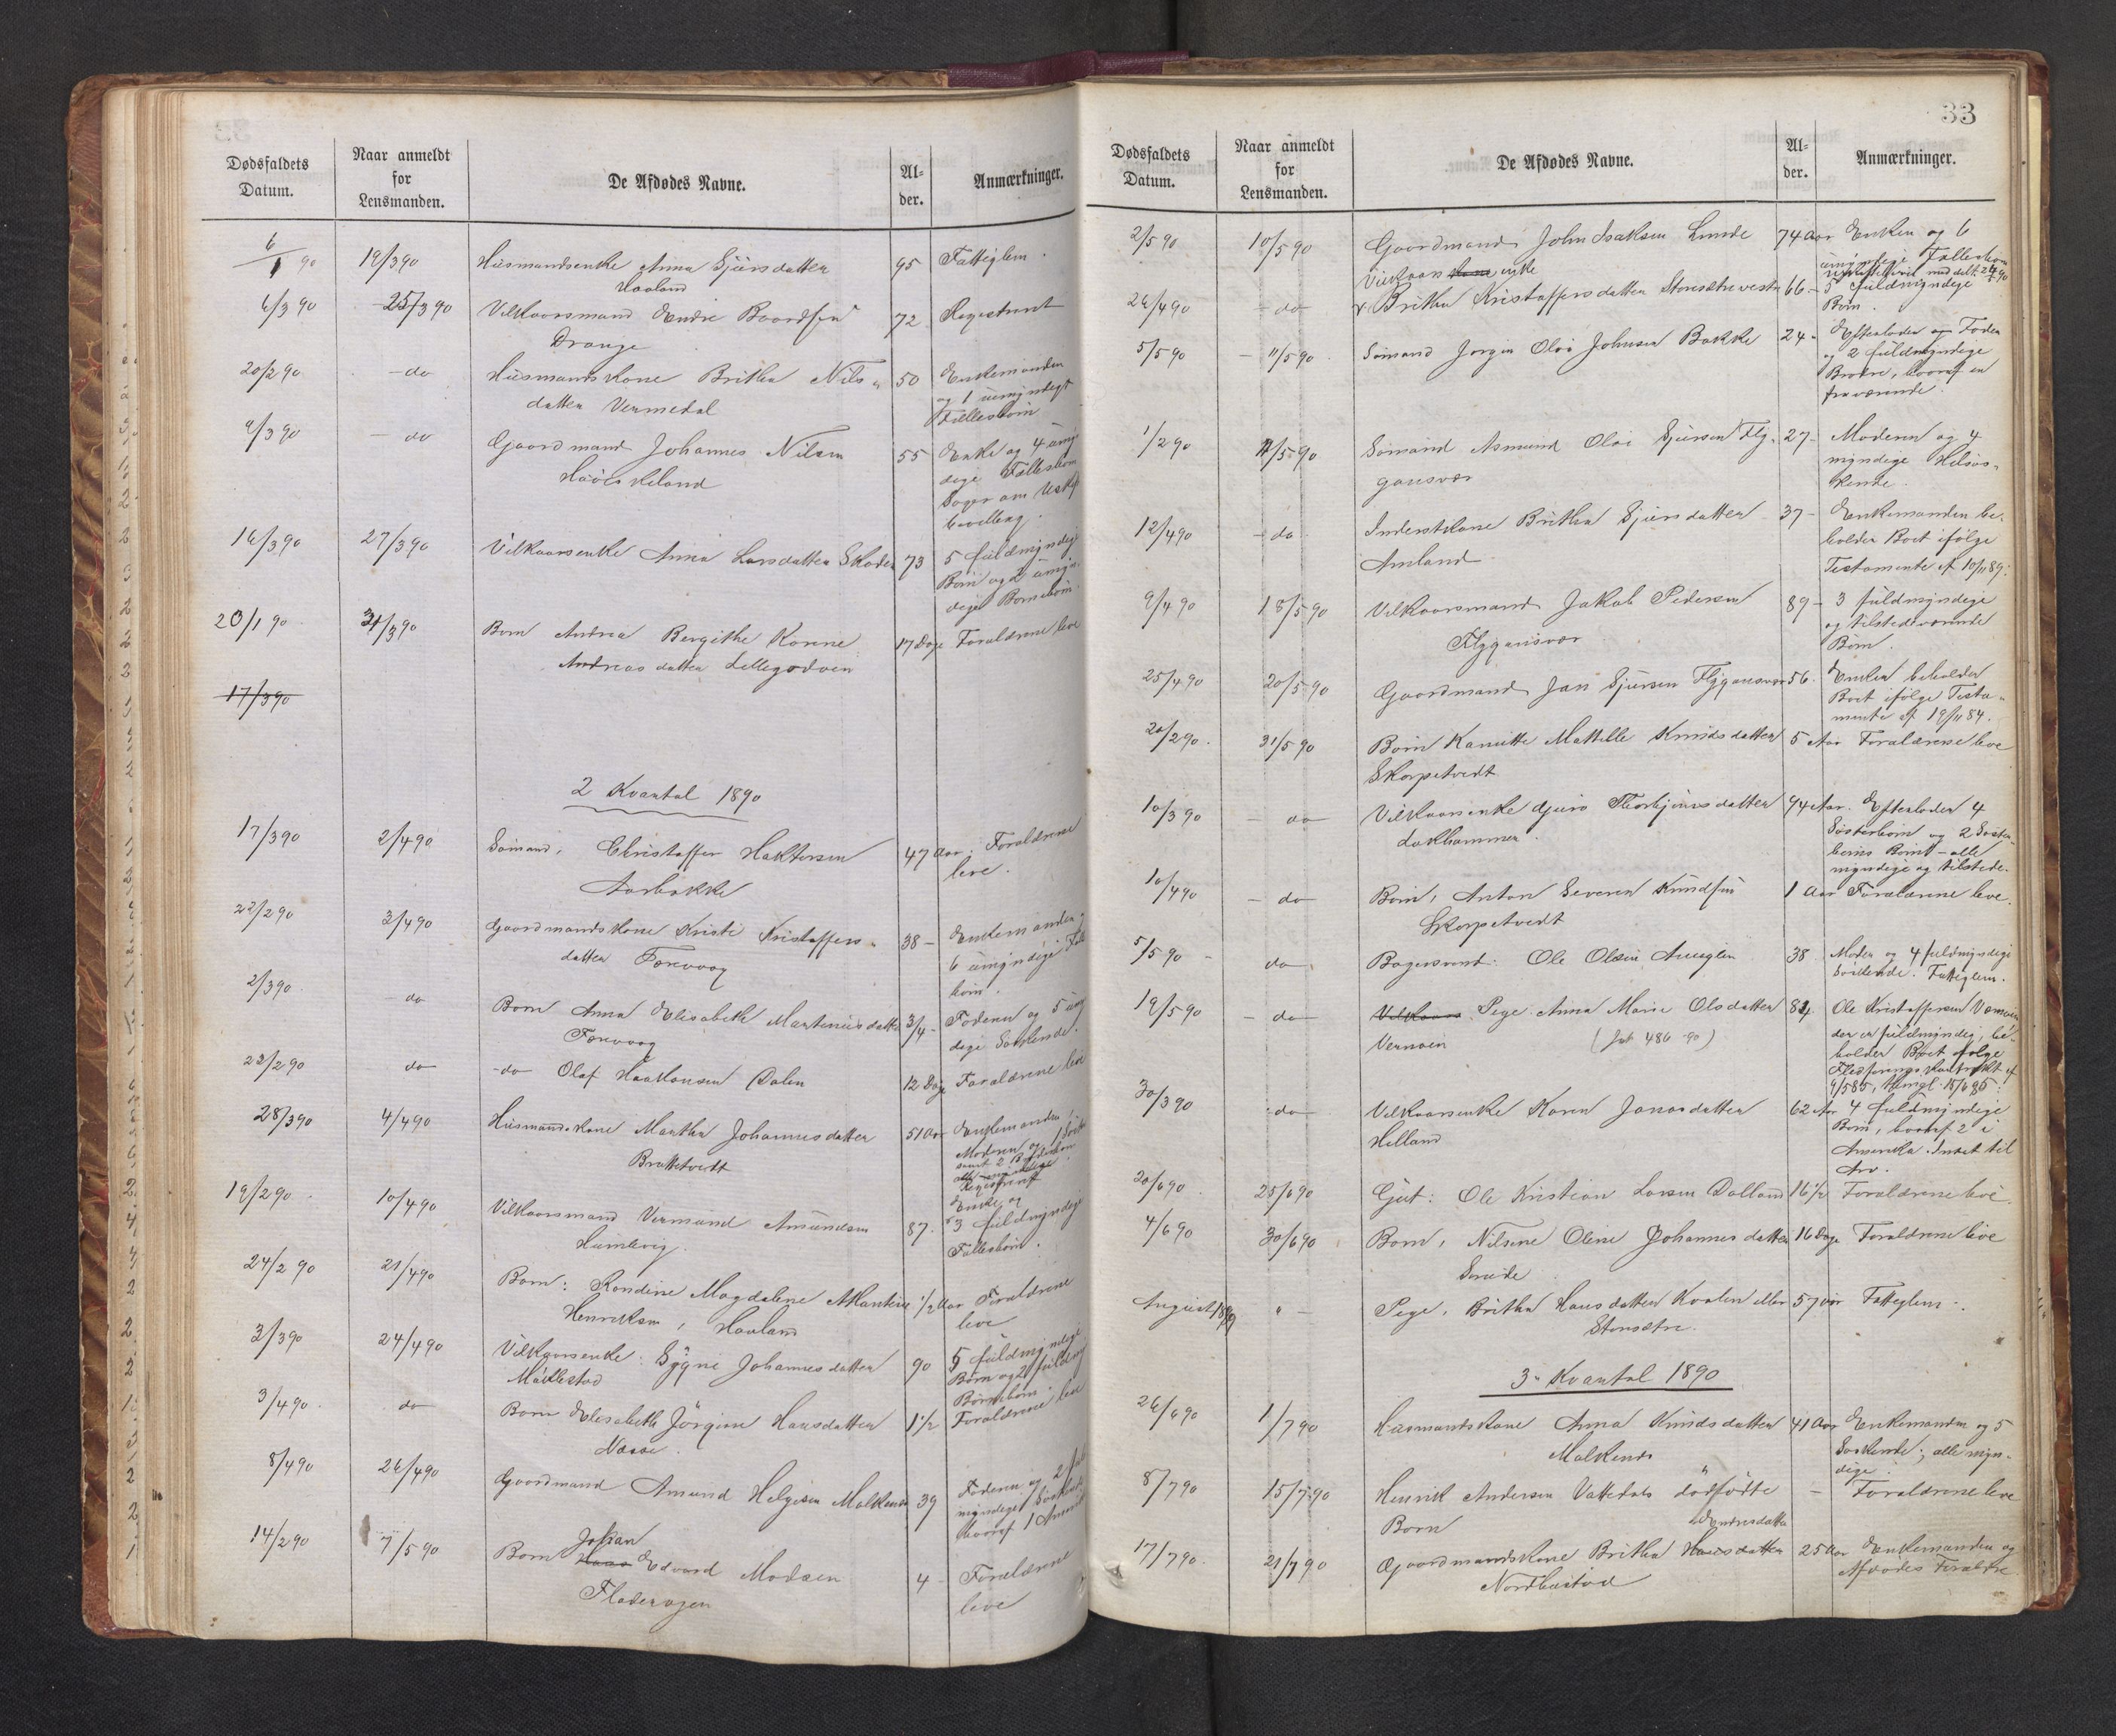 Dødsfaldets Datum.
Naar anmeldt for Lensmanden.
De Afdødes Navne.
Al-der.
Anmærkninger.
6/1 90 19/3 90 Husmandsenke Anna Sjursdatter 95 Fattiglem.
Haaland
6/3 90 25/3 90 Vilkaarsmand Endre Baardsen 72 Registrert
Drange
20/2 90 - do Husmandskone Britha Nils- 50 Enkemanden
datter Vermedal og 1 umyndigt
Fællesbørn
9/3 90 - do Gaardmand Johannes Nilsen 55 Enke og 4 umyn
dige Fællesbørn
Søger om Uskif
bevilling.
16/3 90 27/3 90 Vilkaarsenke Anna Larsdatter 73 5 fuldmyndige
Børn og 2 umyn
dige Børnebørn.
20/1 90 31/3 90 Barn Andrea Bergithe Korene 17 Dage Forældrene leve
Andreasdatter
17/3 90
2 Kvartal 1890
17/3 90 2/4 90 Sømand, Christoffer Haktorsen 47 Aar. Forældrene
Aarbakke leve.
22/2 90 3/4 90 Gaardmandskone Kristi Kristoffers- 38 - Enkemanden og
datter 6 umyndige Fælles
børn.
2/3 90 - do Barn Anna Elisabeth Martinusdatter 3/4 - Faderen og 5 umyn
dige Søskende.
22/2 90 do - do Olaf Haakonsen Dalen 12 Dage Forældrene leve
28/3 90 4/4 90 Husmandskone Martha Johannesdatter 51 Aar Enkemanden,
Brattetvedt Moderen og
samt 2
Registrert
19/2 90 10/4 90 Vilkaarsmand Vermund Amundsen 87. Enke og
Humlevig. 3 fuldmyndige
Fællesbørn.
24/2 90 21/4 90 Barn: Rondine Magdalene 1/2 Aar Forældrene
Henriksen, Haaland leve
2/3 90 24/4 90 Vilkaarsenke: Sygni Johannesdatter 90 5 fuldmyndige
Børn og 2 fuldmyn
Børnebørn.
3/4 90 do Barn Elisabeth Jørgine Hansdatter 1 1/2 Forældrene leve
Næsse.
8/4 90 26/4 90 Gaardmand Amund Helgesen Malkenes 39 Faderen og 2
myndige Søskende
hvoraf 1
14/2 90 7/5 90 Barn Johan Edvard Madsen 4 - Forældrene
leve
33
Dødsfaldets Datum.
Naar anmeldt for Lensmanden.
De Afdødes Navne.
Al-der.
Anmærkninger.
2/5 90 10/5 90 Gaardmand John Isaksen Lunde 74 Aar Enken og 6
umyndige Fællesbørn
Vilkaars Kone enke
26/4 90 - do Britha Kristoffersdatter 66 - 5 fuldmyndige
Børn.
5/5 90 - 11/5 90 Sømand Jørgen Olai Johnsen Bakke 24 - Efterlader og Fader
og 2 fuldmyndige
Brødre, hvoraf en
fraværende.
1/2 90 11/5 90 Sømand Asmund Olai Sjursen Flyg- 27 - Moderen og 4
gansvær myndige Helsøs-
kende.
12/4 90 - do Inderstkone Britha Sjursdatter 37 - Enkemanden be-
Amland holder Boet ifølge
Testamente af 10/11 89.
9/4 90 18/5 90 Vilkaarsmand Jakob Pedersen 89 - 3 fuldmyndige
Flygansvær og tilstedeværende
Børn.
25/4 90 20/5 90 Gaardmand Jan Sjursen Flygansvær 56. Enken beholder
Boet ifølge Testa-
mente af 19/11 84.
20/2 90. 31/5 90 Barn Kanutte Mathilde Knudsdatter 5 Aar Forældrene leve
Skorpetvedt
10/3 90 - do Vilkaarsenke Guro Thorbjørnsdatter 94 Aar. Efterlader 4
Lakhammer. Søsterbørn og 2 Søster
børns Børn - alle
myndige og tilstede.
10/4 90 - do Barn, Anton Severin Knudsen 1 Aar Forældrene leve.
Skorpetvedt
5/5 90 - do Bagersvend: Ole Olsen 38 Moder og 4 fuldmyndige
Søskende. Fattiglem.
19/5 90 - do Vilkaars Pige Anna Marie Olsdatter 84. Ole Kristoffersen
Vernøen (Jnl 486-90) der er fuldmyndig, be-
holder Boet ifølge
Kontrakt af
9/5 85,
30/3 90 - do Vilkaarsenke Karen Jonasdatter 62 Aar 4 fuldmyndige
Helland Børn, hvoraf 2 i
Amerika. Intet til
Arv.
20/6 90 25/6 90 Gut: Ole Kristian Larsen Dalland 16 1/2 Forældrene leve
4/6 90 30/6 90 Barn, Nilsine Oline Johannesdatter 16 Dage Forældrene leve
August 1889 " - Pige, Britha Hansdatter Kvalen eller 57 Aar Fattiglem -.
Stensætre.
3. Kvartal 1890
26/6 90 1/7 90 Husmandskone Anna Knudsdatter 41 Aar Enkemanden og 5
Malkenes Søskende; alle myn-
dige.
8/7 90 15/7 90 Henrik Andersen Vattedals dødfødte - Forældrene leve
Barn
Endresdatter
17/7 90. 21/7 90 Gaardmandskone Britha Hansdatter 25 Aar Enkemanden og
Nordhustad Afdødes Forældre